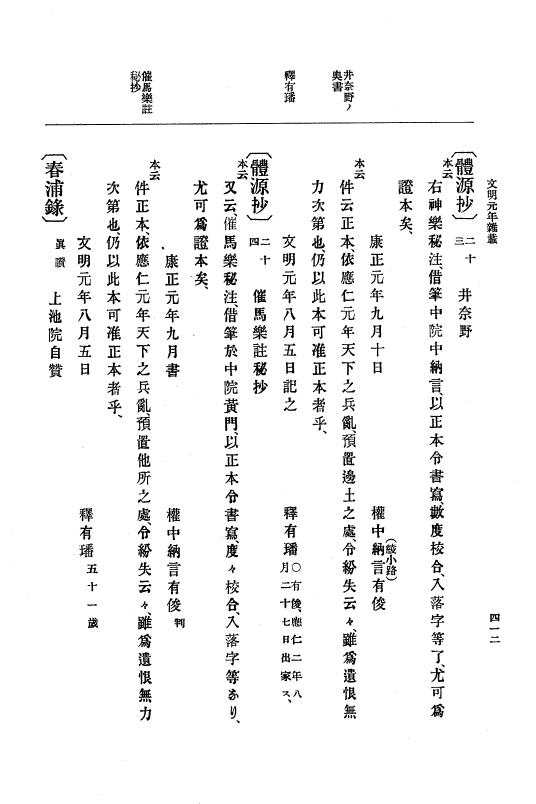 文明元年雜載
四一二
井奈野ノ奧書
釋有璠
催馬樂註秘抄
〔體源抄〕二十三 井奈野
本云
右神樂秘注、借筆中院中納言、以正本令書寫、數度校合、入落字等了、尤可爲
證本矣、
康正元年九月十日 權中納言有俊
(綾小路)
本云
件云正本、依應仁元年天下之兵亂、預置邊土之處、令紛失云々、雖爲遺恨無
力次第也、仍以此本可准正本者乎、
文明元年八月五日記之 釋有璠〇有俊、應仁二年八月二十七日出家ス、
〔體源抄〕二十四 催馬樂註秘抄
本云
又云催馬樂秘注、借筆於中院黃門、以正本令書寫、度々校合、入落字等あり、
尤可爲證本矣、
康正元年九月書 權中納言有俊判
本云
件正本、依應仁元年天下之兵亂、預置他所之處、令紛失云々、雖爲遺恨無力
次第也、仍以此本可准正本者乎、
文明元年八月五日 釋有璠五十一歲
〔春浦錄〕眞讚 上池院自贊